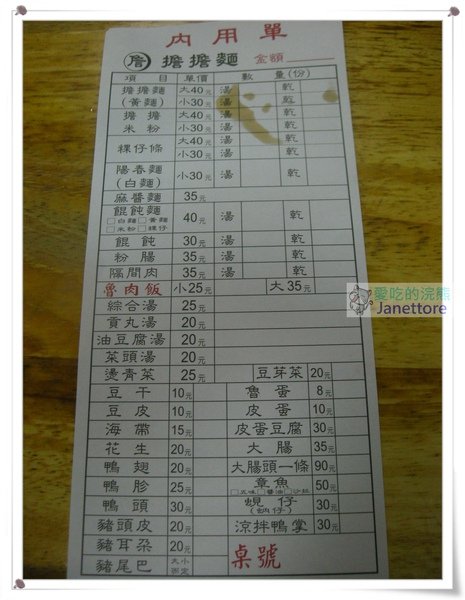 內用單
擔擔麵 金額
項目 單價 數量(份)
擔擔麵 大40元 湯 乾
(黃麵) 小30元 湯 乾
擔擔 大40元 湯 乾
米粉 小30元 湯 乾
粿仔條 大40元 湯 乾
小30元 湯 乾
陽春麵
(白麵) 小30元 湯 乾
麻醬麵 35元
餛飩麵 40元 湯 乾
□白麵□黃麵
□米粉□粿仔
餛飩 30元 湯 乾
粉腸 35元 湯 乾
隔間肉 35元 湯 乾
魯肉飯 小25元 大35元
綜合湯 25元
貢丸湯 20元
油豆腐湯 20元
菜頭湯 20元
燙青菜 25元 豆芽菜 20元
豆干 10元 魯蛋 8元
豆皮 10元 皮蛋 10元
海帶 15元 皮蛋豆腐 30元
花生 20元 大腸 35元
鴨翅 20元 大腸頭一條 90元
鴨胗 25元 章魚 50元
□五味□醬油□沙拉
鴨頭 30元 蜆仔 30元
(蚋仔)
豬頭皮 20元 涼拌鴨掌 30元
豬耳朵 20元 桌號
豬尾巴 大小
愛吃的浣熊
Janettore